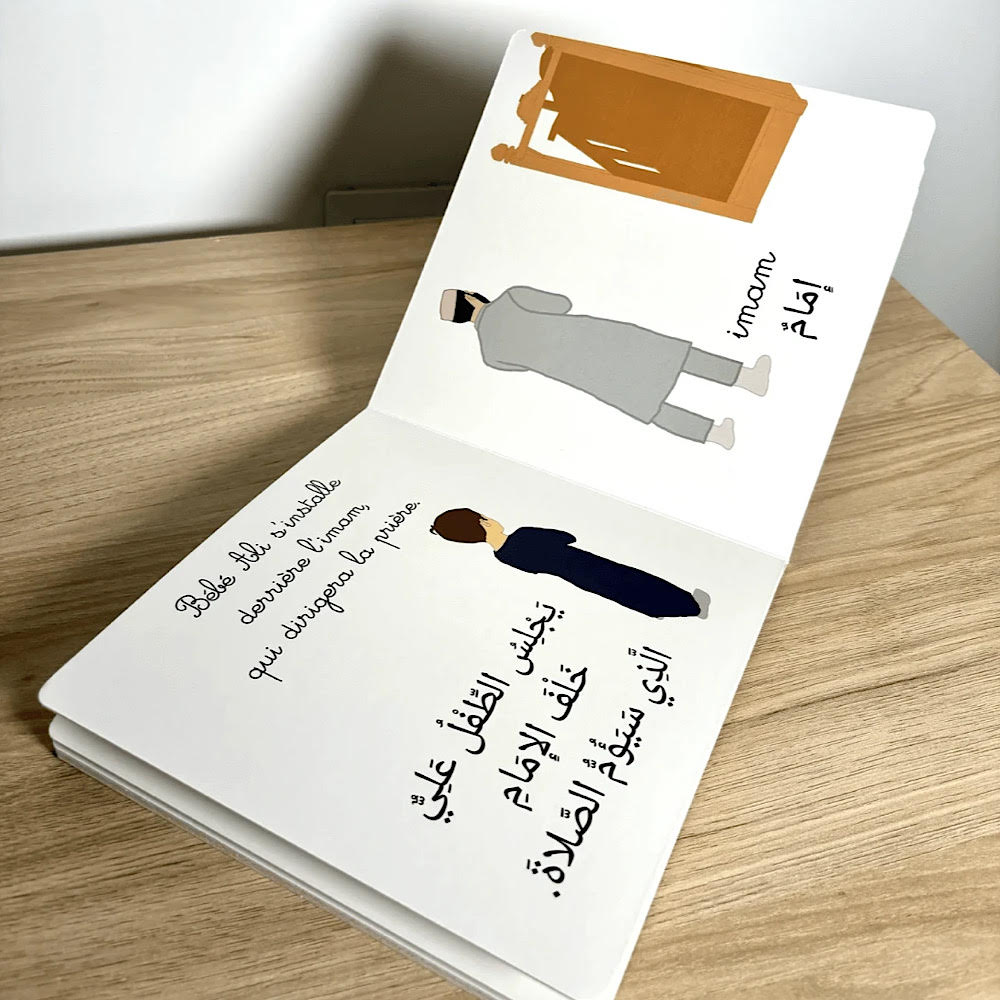 Bébé Ali s'installe
derrière l'imam,
qui dirigera la prière.
يَجْلِسُ الطِّفْلُ عَلِيٌّ
خَلْفَ الإِمَامِ
الَّذِي سَيَؤُمُّ الصَّلاةَ.
imam
إِمَامٌ